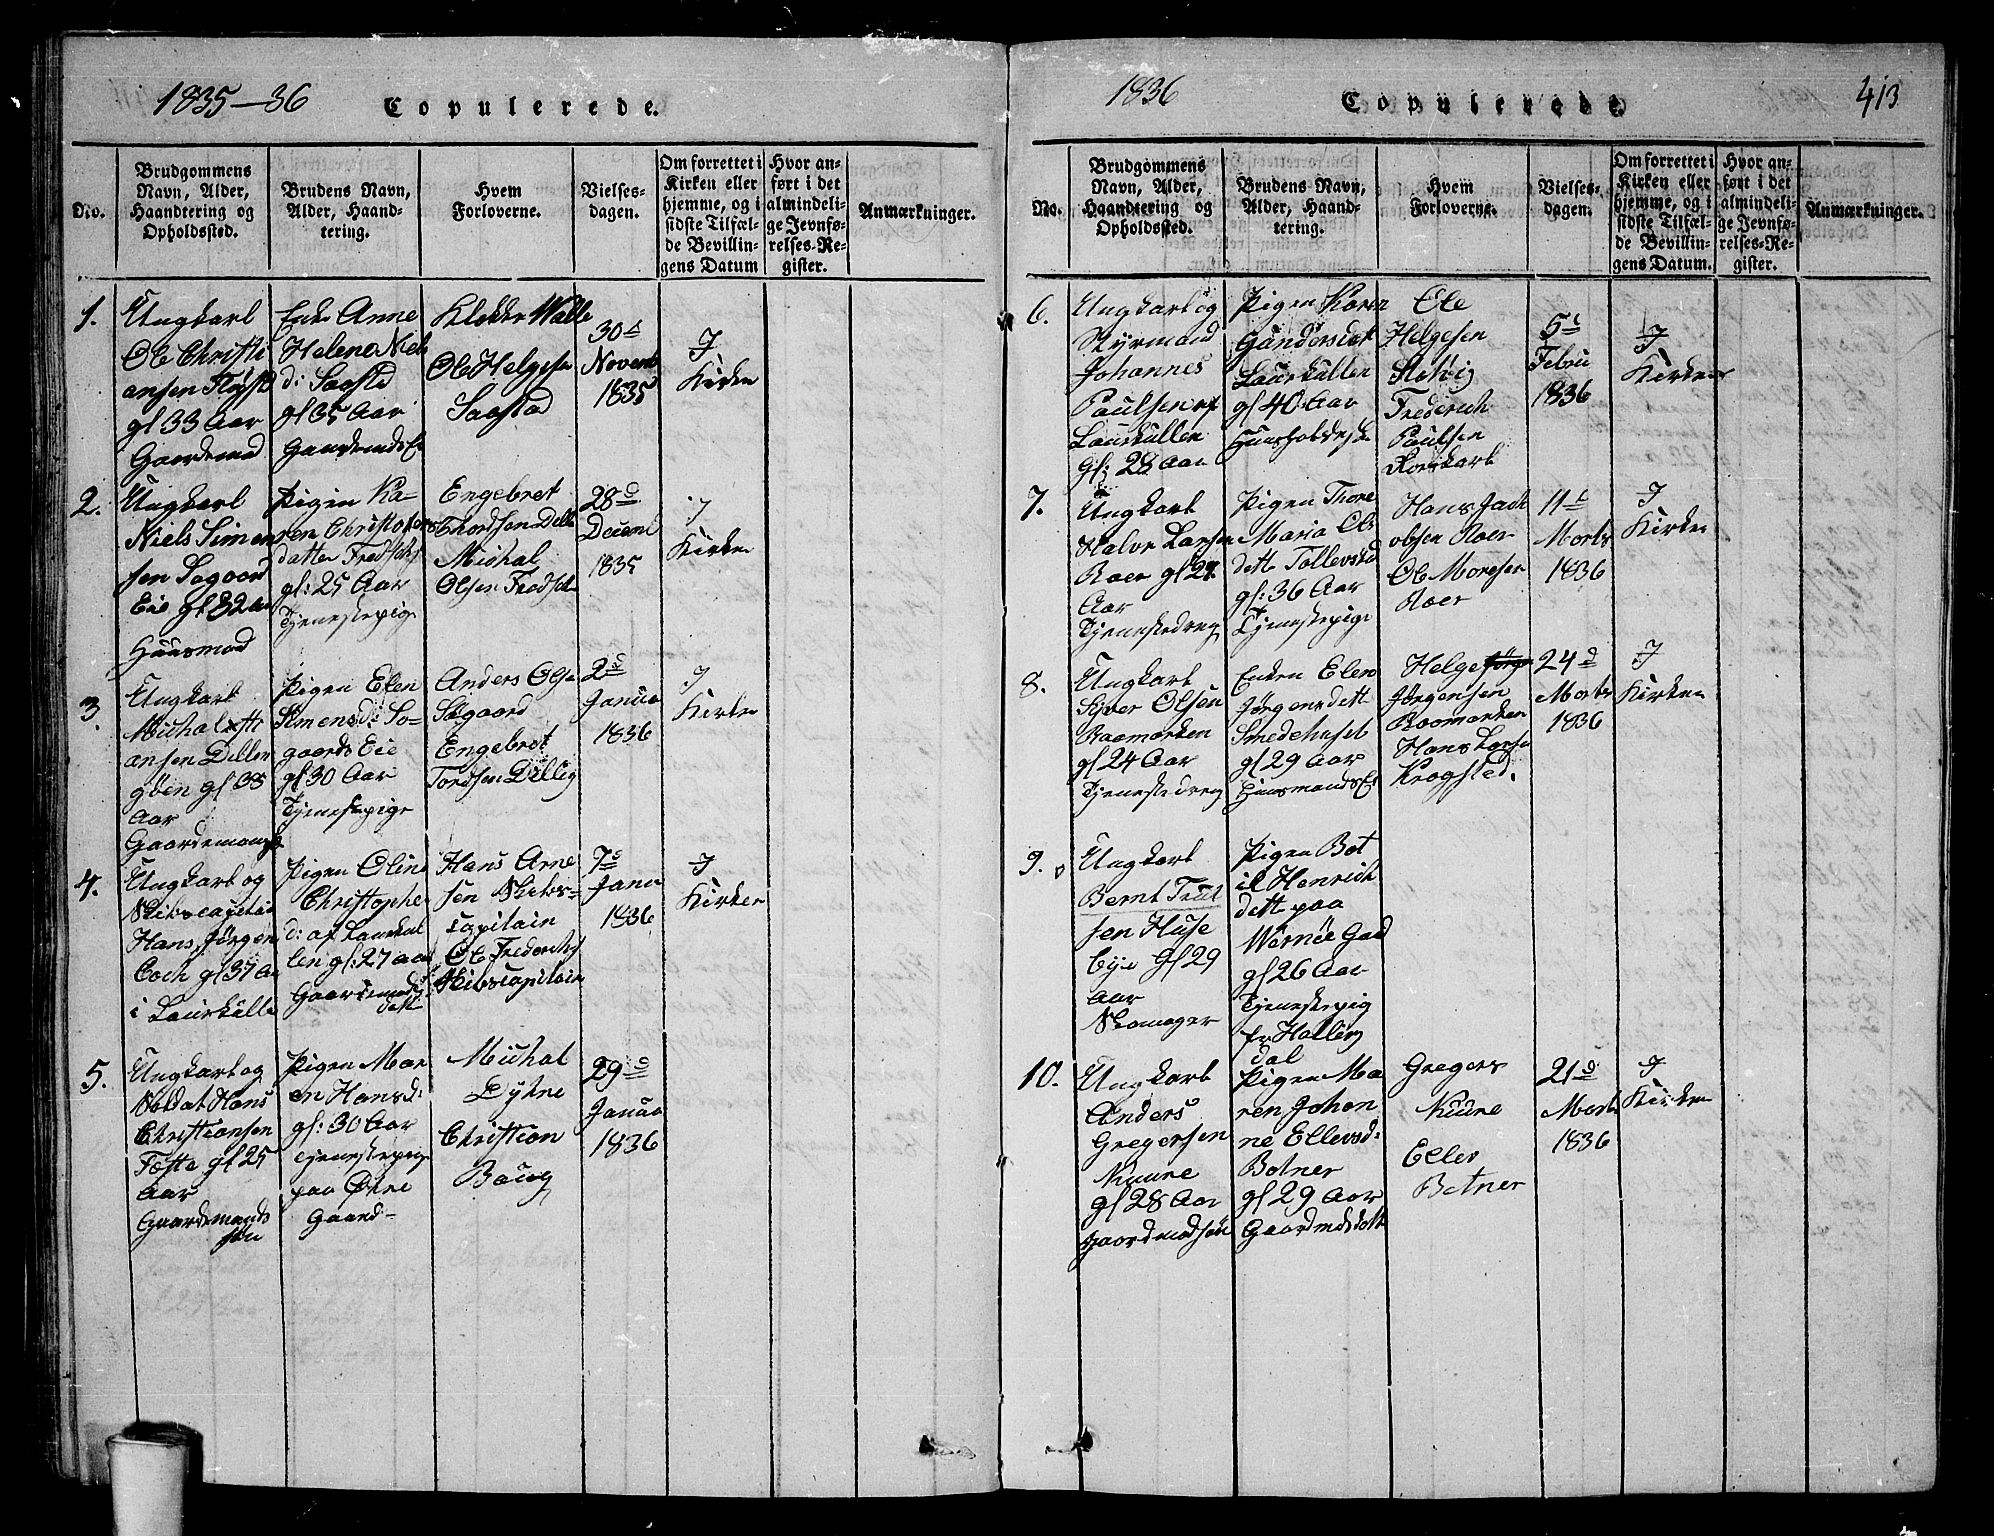 1835-36
Copulerede.
No.
Brudgommens
Navn, Alder,
Haandtering og
Opholdssted.
Brudens Navn,
Alder, Haand-
tering.
Hvem
Forloverne.
Vielses-
dagen.
Om forrettet i
Kirken eller
hjemme, og i
sidste Tilfæl-
de Bevillin-
gens Datum
Hvor an-
ført i det
almindeli-
ge Jevnfø-
relses-Re-
gister.
Anmærkninger.
1.
Ungkarl
Ole Christi
ansen
gl 33 Aar
Gaardemad
Enke Anne
Helene Niels
d: Sagstd
gl 35 Aar
Klokker Walle
Ole Helgesen
Sagstad
30d
Novemb
1835
I
Kirken
2.
Ungkarl
Niels Simen
sen Sogaard
Eie gl 32 Aar
Huusmad
Pigen Ka-
ren Christophers
datter
gl: 25 Aar
Tjenestepige
Engebret
Thordsen Dille
Michal
Olsen
28d
Deceml
1835
I
Kirken
3.
Ungkarl
Michal
ansen Dillen
göen gl 38
Aar
Gaardemands
Pigen Elen
Simensd: So-
gaards Eie
gl 30 Aar
Tjenestepige
Anders Olse
Sögaard
Engebret
Tordsen Dilling
2d
Janua
1836
I
Kirken
4.
Ungkarl og
Skibscapitain
Hans Jörgen
Coch gl 37 a
i Laurkulle
Pigen Oline
Christophe
d: af Laurkul
len gl: 27 aa
Gaardemads
datt
Hans Arne
sen Skibs-
capitain
Ole Frederichs
Skibscapitain
7d
Janua
1836
I
Kirken
5.
Ungkarl og
Soldat Hans
Christiansen
Tofte gl 25
Aar
Gaardemands
sön
Pigen Mar
en Hansd:
gl: 30 Aar
tjenestepige
paa Övre
Gaard-
Michal
Dykne
Christian
Baug
29d
Janua
1836
1836
Copulerede.
413
No.
Brudgommens
Navn, Alder,
Haandtering og
Opholdssted.
Brudens Navn,
Alder, Haand-
tering.
Hvem
Forloverne.
Vielses-
dagen.
Om forrettet i
Kirken eller
hjemme, og i
sidste Tilfæl-
de Bevillin-
gens Datum.
Hvor an-
ført i det
almindeli-
ge Jevnfø-
relses-Re-
gister.
Anmærkninger.
6.
Ungkarl og
Styrmand
Johannes
Paulsen af
Laurkullen
gl: 28 Aar
Pigen Karen
Gundersdat
Laurkullen
gl 40 Aar
Huusholderske
Ole
Helgesen
Frederich
Paulsen
5t
Febru
1836
I
Kirken
7.
Ungkarl
Halvr Larsen
Roer gl 27
Aar
Tjenestedreng
Pigen Thore
Maria Ols
dette Tollevstad
gl: 36 Aar
Tjenestepige
Hans Jack
obsen Roer
Ole Moresen
Roer
11t
Marts
1836
I
Kirken
8.
Ungkarl
Syver Olsen
Raamarken
gl 24 Aar
Tjenestedreng
Enken Elen
Jörgensdett
Smedehuset
gl 29 Aar
Huusmands E
Helge
Jörgensen
Raamarken
Hans Larse
Krogsted.
24d
Marts
1836
I
Kirken
9.
Ungkarl
Bernt Trul
sen Huse
bye Gl 29
Aar
Skomager
Pigen Bot
il Henrich
dett paa
Wernöe Gad
gl 26 Aar
Tjenestepig
fr Halling
dal
10.
Ungkarl
Anders
Gregersen
Kuure
gl 28 Aar
Gaardmadsön
Pigen Ma
ren Johan
ne Ellevsd:
Botner
gl 29 Aar
Gaardmdsdatt
Gregers
Kuure
Ellev
Botner
21d
Marts
1836
I
Kirken